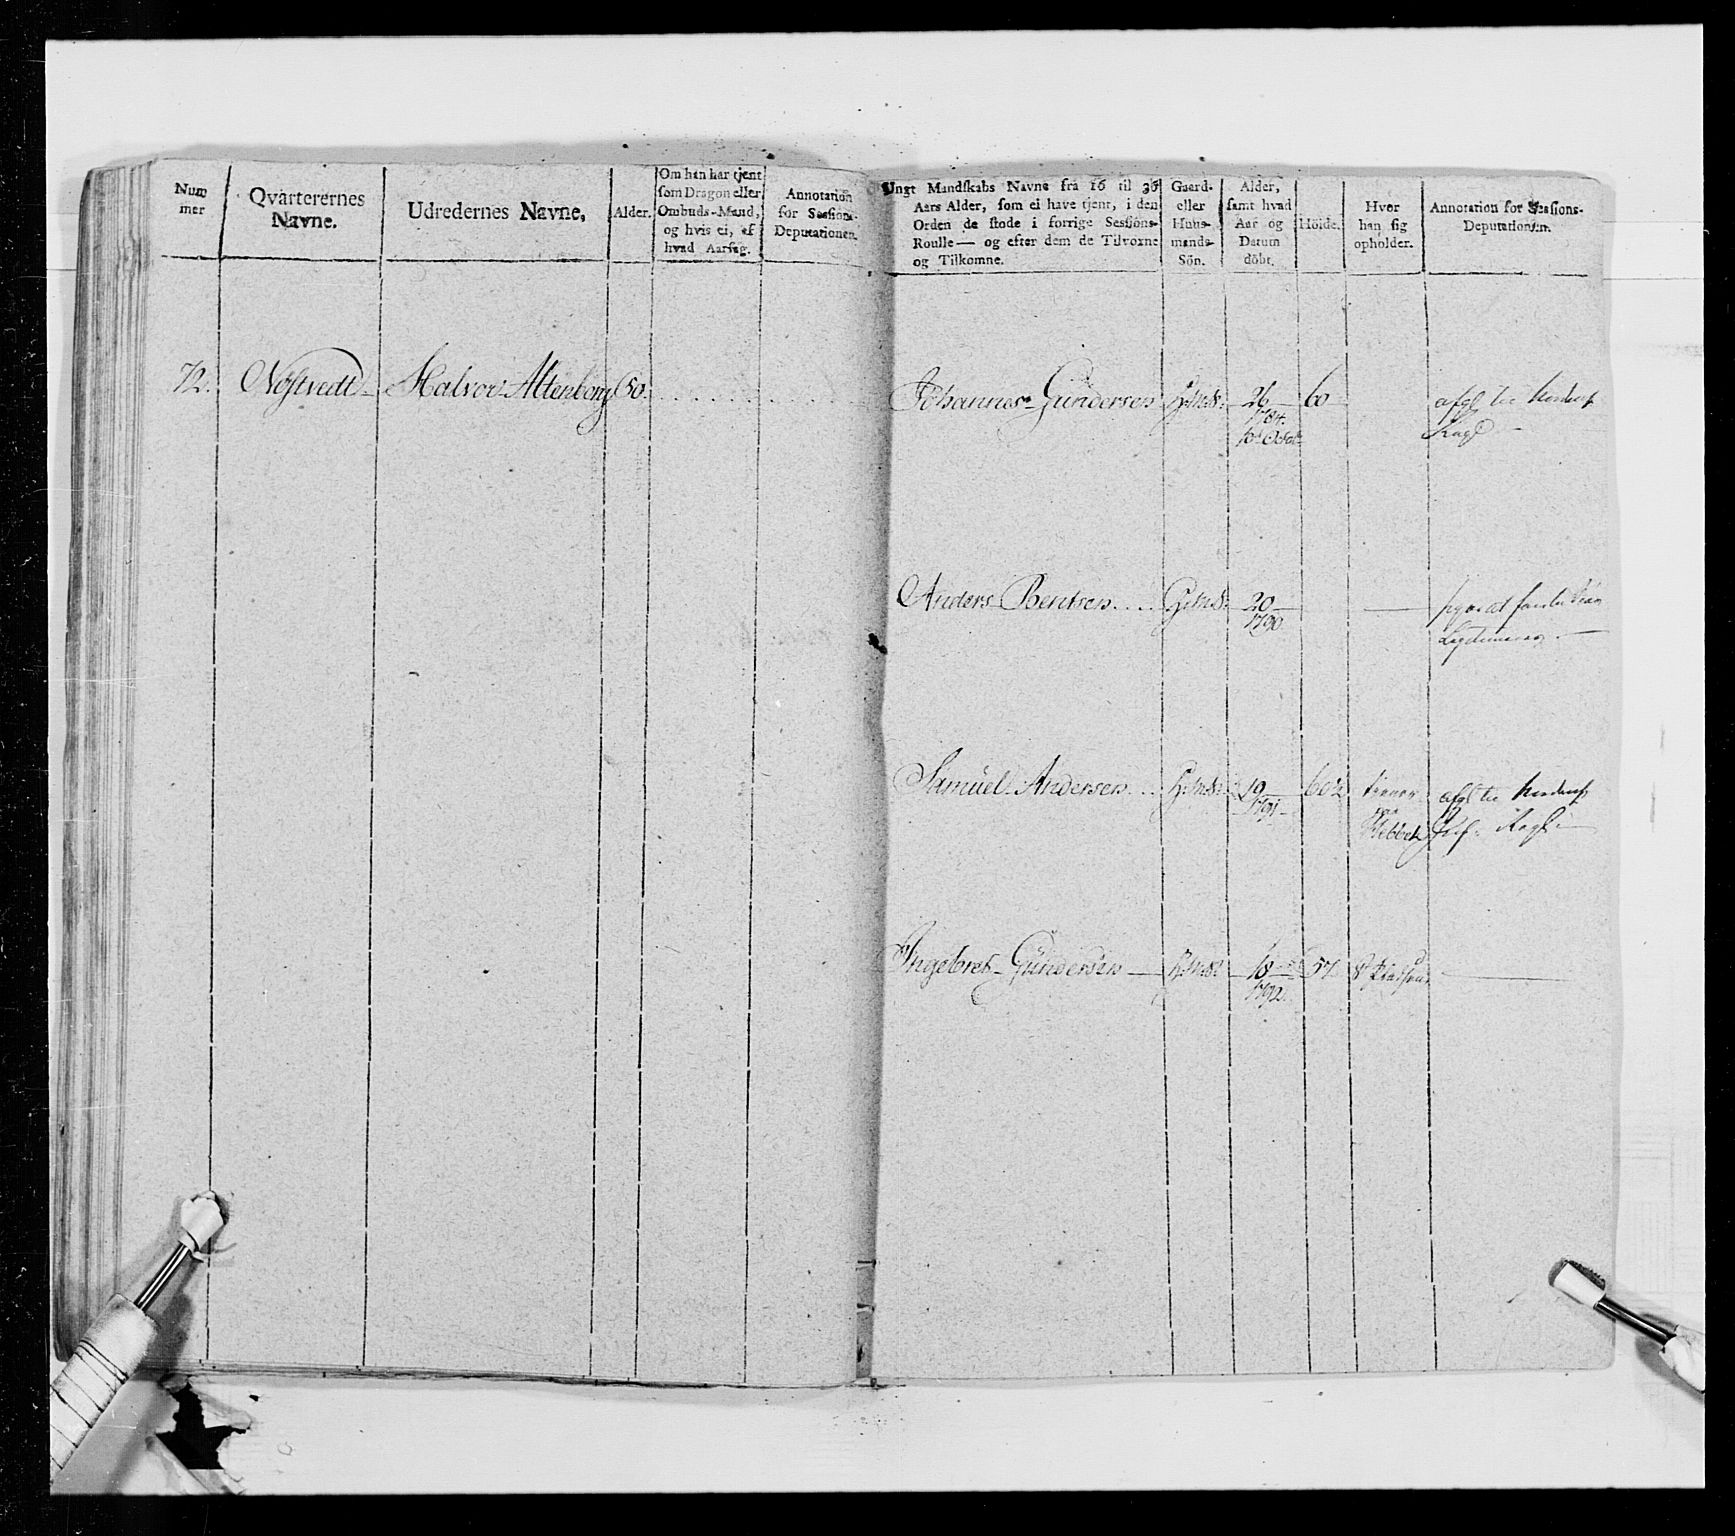 Num
mer
Qvarterernes
Navne.
Udredernes Navne,
Alder.
Om han har tjent
som Dragon eller
Ombuds-Mand,
og hvis ei, af
hvad Aarsag.
Annotation
for Sessions-
Deputationen.
Ungt Mandskabs Navne fra 16 til 36
Aars Alder, som ei have tjent, i den
Orden de stode i forrige Sessions-
Roulle — og efter dem de Tilvoxne
og Tilkomne.
Gaard-
eller
Huus-
mands-
Sön.
Alder,
samt hvad
Aar og
Datum
döbt.
Höide.
Hvor
han sig
opholder.
Annotation for Sessions-
Deputationen.
72. Nøstvedt Halvor Altenborg 50.
Johannes Gundersen H:M:S: 26 60
1784.
Anders Bentsen G:M:S: 20
1790
Samuel Andersen H:M:S: 19 60½ tiener
1791 paa
Ingebret Gundersen H:M:S: 18 57
1792.